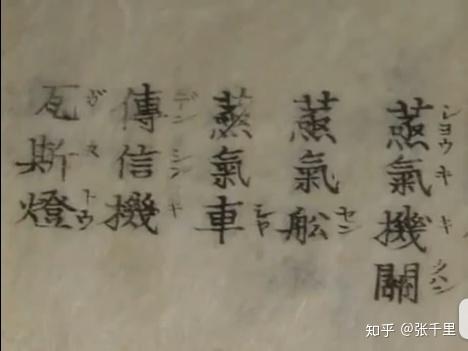 蒸氣機關
シヨウキキクハン
蒸氣舩
セン
蒸氣車
シヤ
傳信機
デンシンキ
瓦斯燈
ガストウ
知乎 @张千里